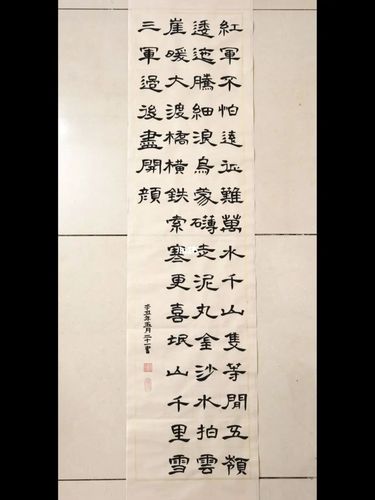 紅軍不怕遠征難萬水千山隻等閒五嶺
逶迤騰細浪烏蒙礴走泥丸金沙水拍雲
崖暖大渡橋橫鉄索寒更喜岷山千里雪
三軍過後盡開顏
辛丑年五月二十一書